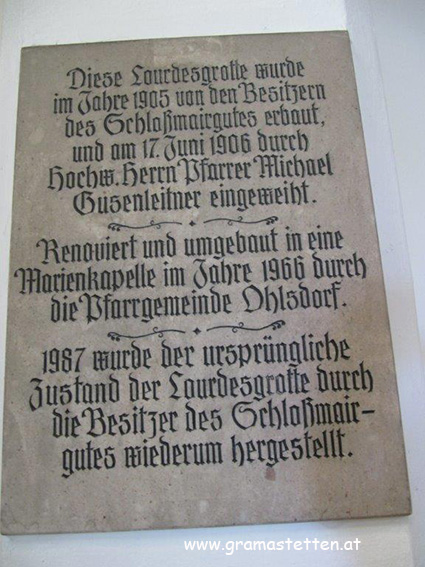 Diese Lourdesgrotte wurde
im Jahre 1905 von den Besitzern
des Schloßmairgutes erbaut,
und am 17. Juni 1906 durch
Hochw. Herrn Pfarrer Michael
Gusenleitner eingeweiht.
Renoviert und umgebaut in eine
Marienkapelle im Jahre 1966 durch
die Pfarrgemeinde Ohlsdorf.
1987 wurde der ursprüngliche
Zustand der Lourdesgrotte durch
die Besitzer des Schloßmair-
gutes wiederum hergestellt.
www.gramastetten.at